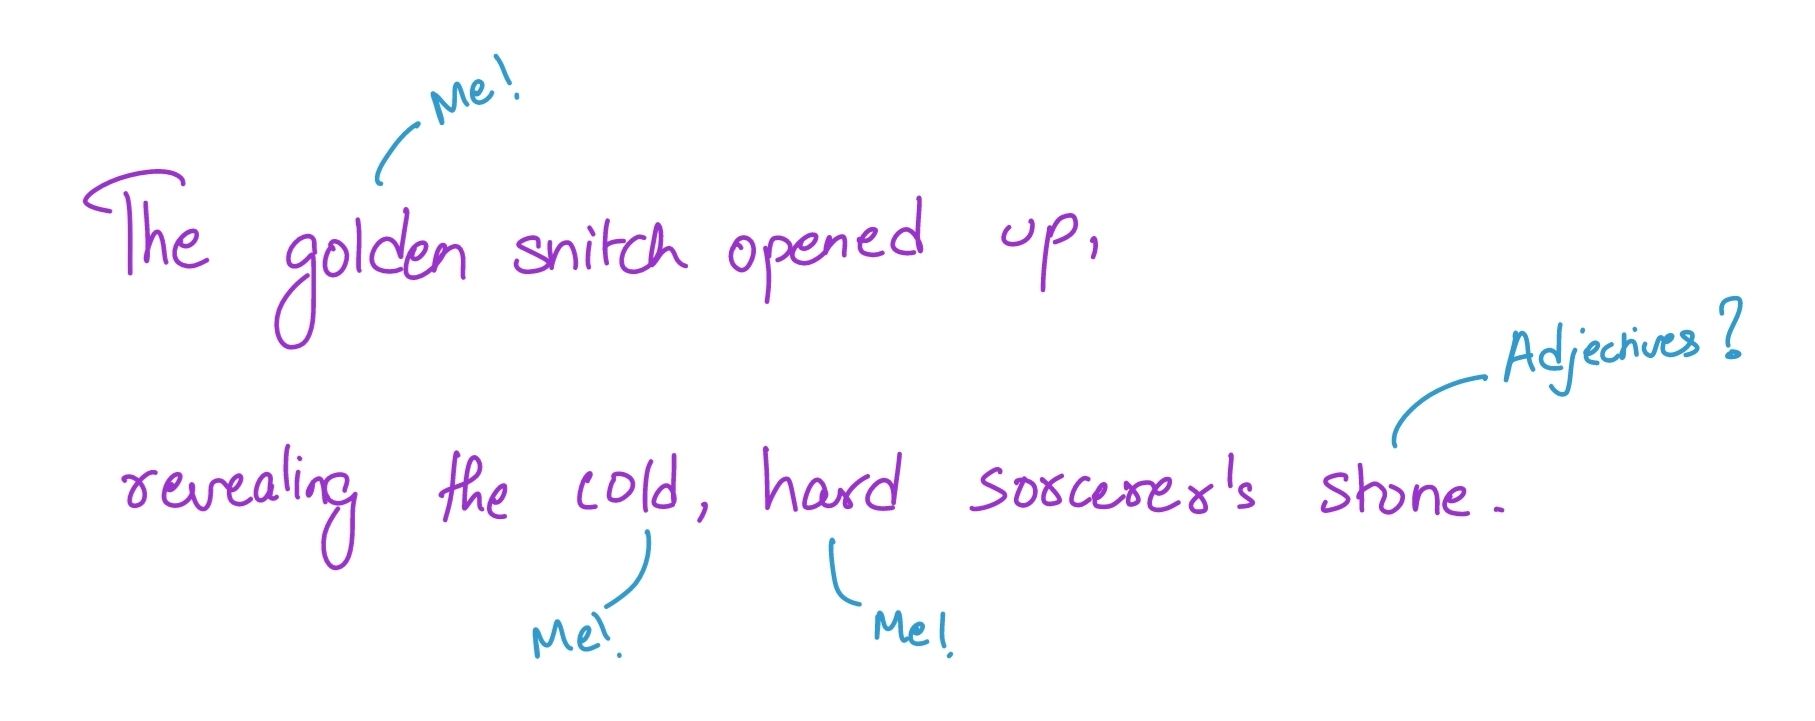 Me!
The golden snitch opened up,
Adjectives?
revealing the cold, hard sorcerer's stone.
Me! Me!